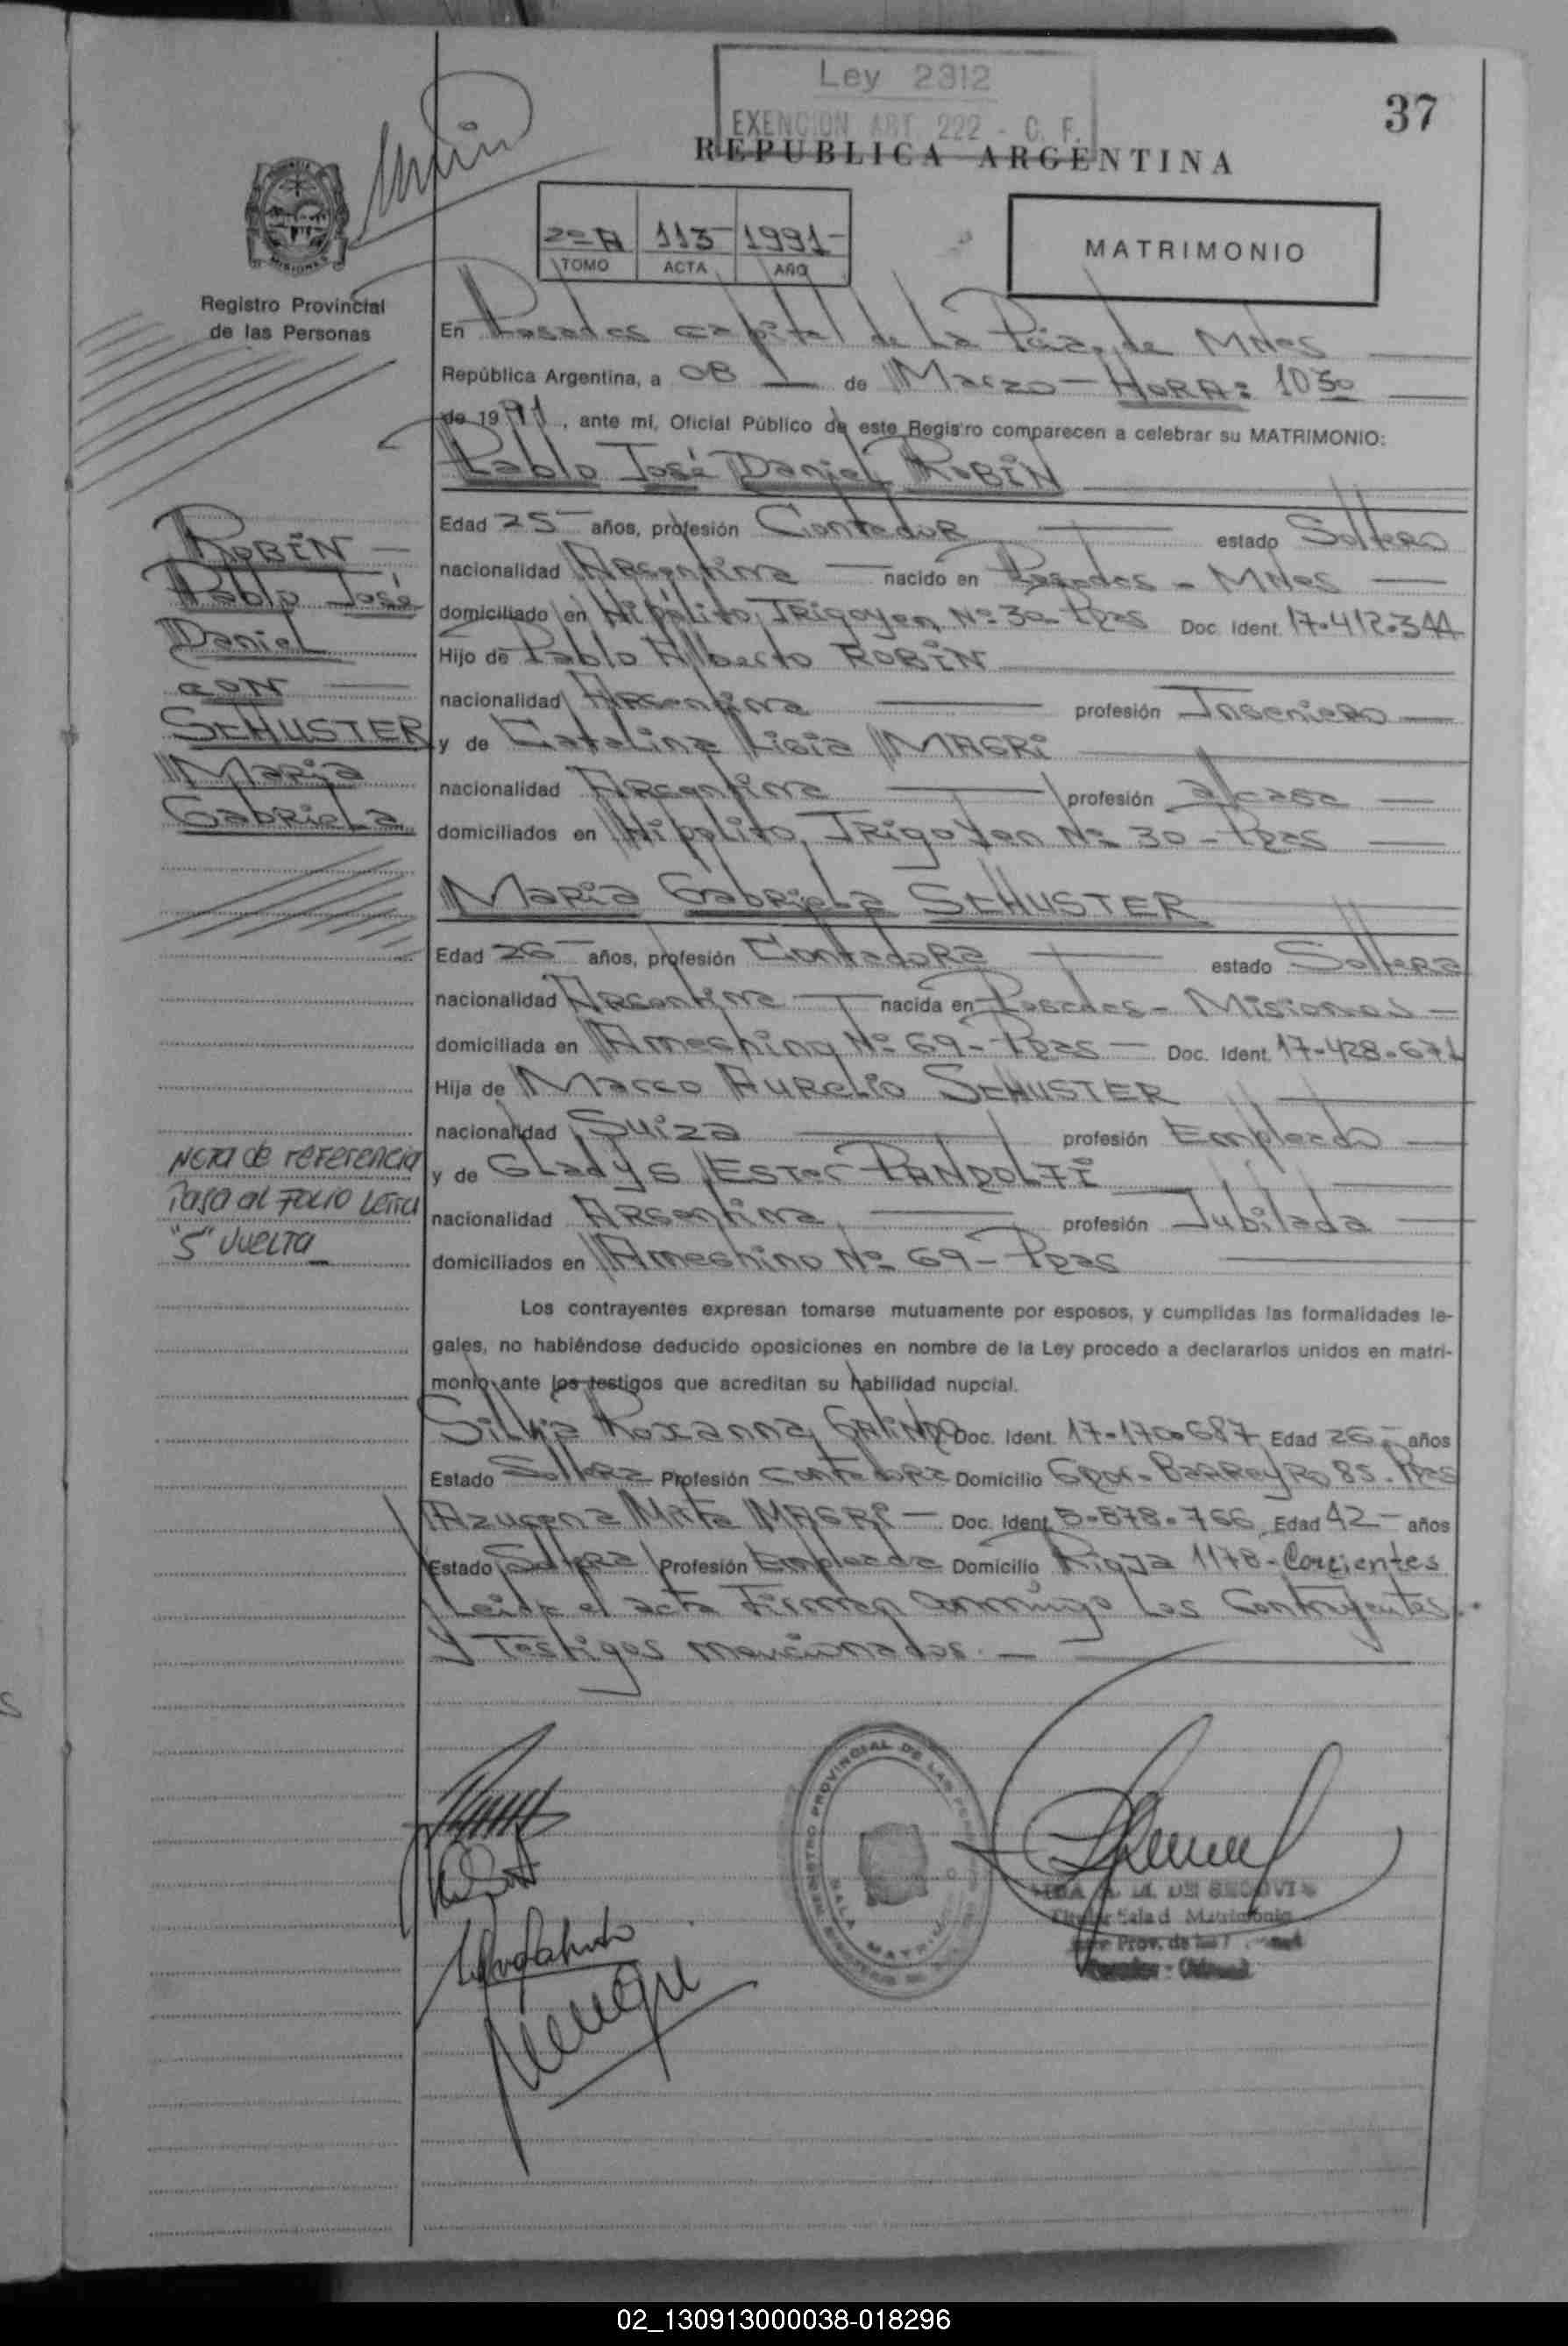 Ley 2312
EXENCION ART 222 - C. F.
37
REPUBLICA ARGENTINA
2º A 113 1991
TOMO ACTA AÑO
MATRIMONIO
MISIONES
Registro Provincial
de las Personas
En Posadas capital de La Pcia. de MNes
República Argentina, a 08 de Marzo - HORA: 10 30
de 1991, ante mí, Oficial Público de este Registro comparecen a celebrar su MATRIMONIO:
Pablo José Daniel ROBIN
Edad 25 años, profesión Contador estado Soltero
nacionalidad Argentina nacido en Posadas - MNes
domiciliado en Hipólito Irigoyen Nº 30 - Pdas Doc. Ident. 17.412.344
Hijo de Pablo Alberto ROBIN
nacionalidad Argentina profesión Ingeniero
y de Catalina Ligia MAGRI
nacionalidad Argentina profesión a/casa
domiciliados en Hipolito Irigoyen Nº 30 - Pdas
Maria Gabriela SCHUSTER
Edad 26 años, profesión Contadora estado Soltera
nacionalidad Argentina nacida en Posadas - Misiones
domiciliada en Ameghino Nº 69 - Pdas Doc. Ident. 17-428-671
Hija de Marco Aurelio SCHUSTER
nacionalidad Suiza profesión Empleado
y de Gladys Ester PANDOLFI
nacionalidad Argentina profesión Jubilada
domiciliados en Ameghino Nº 69 - Pdas
Los contrayentes expresan tomarse mutuamente por esposos, y cumplidas las formalidades le-
gales, no habiéndose deducido oposiciones en nombre de la Ley procedo a declararlos unidos en matri-
monio ante los testigos que acreditan su habilidad nupcial.
Silvia Roxanna GALINDO Doc. Ident. 17-170.687 Edad 26 años
Estado Soltera Profesión Contadora Domicilio Gdor. Barreyro 85. Pdas
Azucena Mirta MAGRI Doc. Ident. 5-878-766 Edad 42 años
Estado Soltera Profesión Empleada Domicilio Rioja 1178 - Corrientes
Leida el acta Firman conmigo Los Contrayentes
Y Testigos mencionados.
ROBIN
Pablo José
Daniel
CON
SCHUSTER
Maria
Gabriela
Nota de referencia
Pasa al FOLIO Letra
"S" VUELTA
REGISTRO PROVINCIAL DE LAS
SALA MATRIMONIO
DE SEGOVIA
Titular Sala d Matrimonio
Prov. de las
02_130913000038-018296